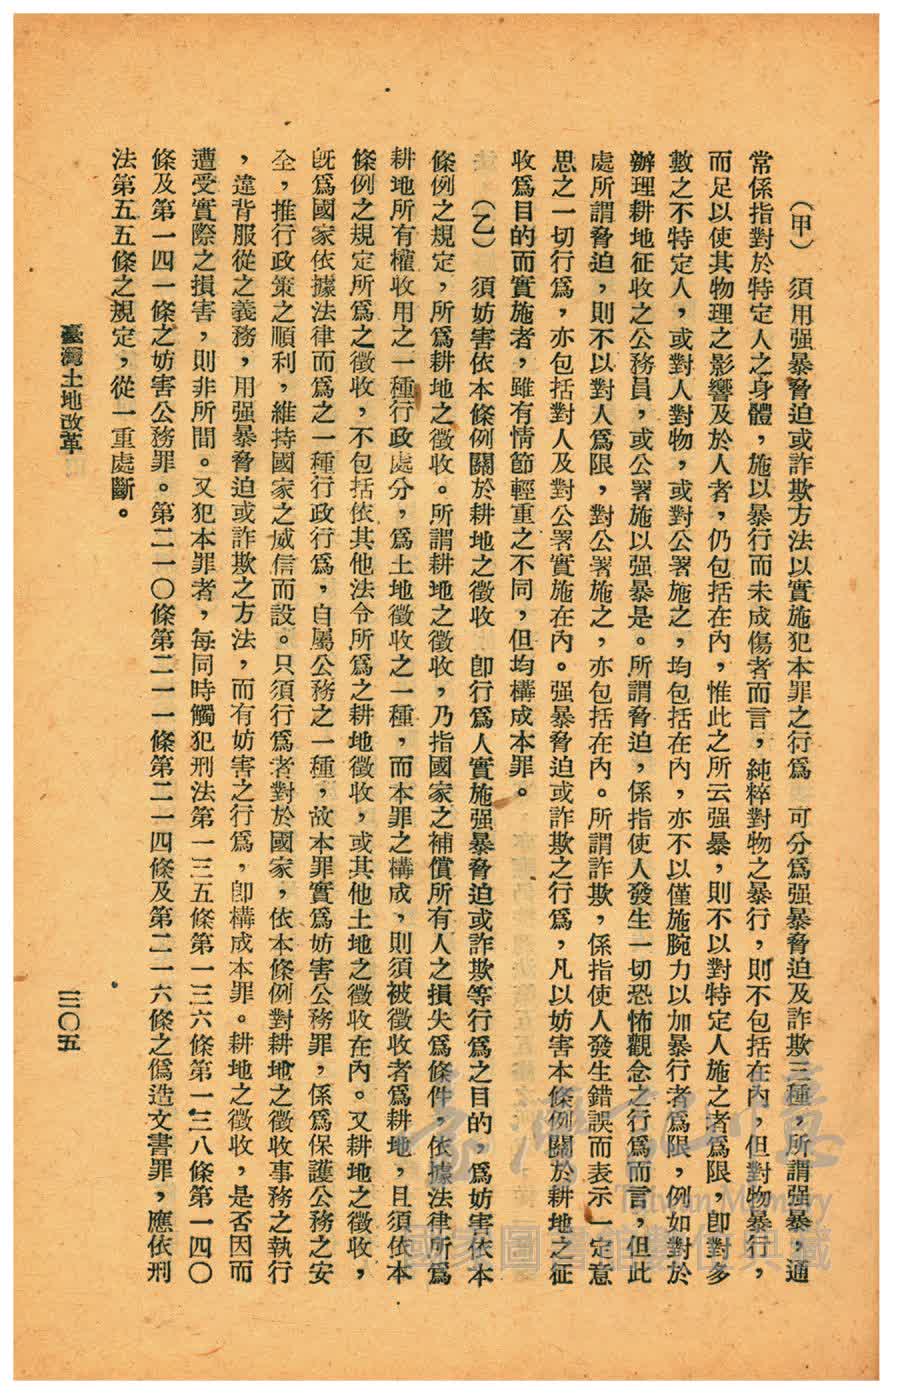 （甲）　須用强暴脅迫或詐欺方法以實施犯本罪之行爲　可分爲强暴脅迫及詐欺三種，所謂强暴，通
常係指對於特定人之身體，施以暴行而未成傷者而言，純粹對物之暴行，則不包括在內，但對物暴行，
而足以使其物理之影響及於人者，仍包括在內，惟此之所云强暴，則不以對特定人施之者爲限，卽對多
數之不特定人，或對人對物，或對公署施之，均包括在內，亦不以僅施腕力以加暴行者爲限，例如對於
辦理耕地征收之公務員，或公署施以强暴是。所謂脅迫，係指使人發生一切恐怖觀念之行爲而言，但此
處所謂脅迫，則不以對人爲限，對公署施之，亦包括在內。所謂詐欺，係指使人發生錯誤而表示一定意
思之一切行爲，亦包括對人及對公署實施在內。强暴脅迫或詐欺之行爲，凡以妨害本條例關於耕地之征
收爲目的而實施者，雖有情節輕重之不同，但均構成本罪。
（乙）　須妨害依本條例關於耕地之徵收　卽行爲人實施强暴脅迫或詐欺等行爲之目的，爲妨害依本
條例之規定，所爲耕地之徵收。所謂耕地之徵收，乃指國家之補償所有人之損失爲條件，依據法律所爲
耕地所有權收用之一種行政處分，爲土地徵收之一種，而本罪之構成，則須被徵收者爲耕地，且須依本
條例之規定所爲之徵收，不包括依其他法令所爲之耕地徵收，或其他土地之徵收在內。又耕地之徵收，
旣爲國家依據法律而爲之一種行政行爲，自屬公務之一種，故本罪實爲妨害公務罪，係爲保護公務之安
全，推行政策之順利，維持國家之威信而設。只須行爲者對於國家，依本條例對耕地之徵收事務之執行
，違背服從之義務，用强暴脅迫或詐欺之方法，而有妨害之行爲，卽構成本罪。耕地之徵收，是否因而
遭受實際之損害，則非所問。又犯本罪者，每同時觸犯刑法第一三五條第一三六條第一三八條第一四〇
條及第一四一條之妨害公務罪。第二一〇條第二一一條第二一四條及第二一六條之僞造文書罪，應依刑
法第五五條之規定，從一重處斷。
臺灣土地改革
三〇五
臺灣記憶
Taiwan Memory
國家圖書館數位典藏